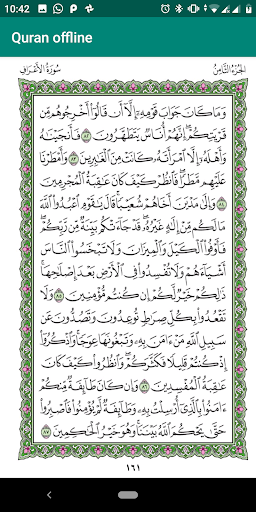 10:42
Quran offline
سُورَةُ الأَعْرَافِ الجُزْءُ الثَّامِنُ
وَمَا كَانَ جَوَابَ قَوْمِهِۦٓ إِلَّآ أَن قَالُوٓاْ أَخْرِجُوهُم مِّن
قَرْيَتِكُمْۖ إِنَّهُمْ أُنَاسٌ يَتَطَهَّرُونَ ٨٢ فَأَنجَيْنَٰهُ
وَأَهْلَهُۥٓ إِلَّا ٱمْرَأَتَهُۥ كَانَتْ مِنَ ٱلْغَٰبِرِينَ ٨٣ وَأَمْطَرْنَا
عَلَيْهِم مَّطَرًاۖ فَٱنظُرْ كَيْفَ كَانَ عَٰقِبَةُ ٱلْمُجْرِمِينَ
٨٤ وَإِلَىٰ مَدْيَنَ أَخَاهُمْ شُعَيْبًاۚ قَالَ يَٰقَوْمِ ٱعْبُدُواْ ٱللَّهَ
مَا لَكُم مِّنْ إِلَٰهٍ غَيْرُهُۥۖ قَدْ جَآءَتْكُم بَيِّنَةٌ مِّن رَّبِّكُمْۖ
فَأَوْفُواْ ٱلْكَيْلَ وَٱلْمِيزَانَ وَلَا تَبْخَسُواْ ٱلنَّاسَ
أَشْيَآءَهُمْ وَلَا تُفْسِدُواْ فِي ٱلْأَرْضِ بَعْدَ إِصْلَٰحِهَاۚ
ذَٰلِكُمْ خَيْرٌ لَّكُمْ إِن كُنتُم مُّؤْمِنِينَ ٨٥ وَلَا
تَقْعُدُواْ بِكُلِّ صِرَٰطٍ تُوعِدُونَ وَتَصُدُّونَ عَن
سَبِيلِ ٱللَّهِ مَنْ ءَامَنَ بِهِۦ وَتَبْغُونَهَا عِوَجًاۚ وَٱذْكُرُوٓاْ
إِذْ كُنتُمْ قَلِيلًا فَكَثَّرَكُمْۖ وَٱنظُرُواْ كَيْفَ كَانَ
عَٰقِبَةُ ٱلْمُفْسِدِينَ ٨٦ وَإِن كَانَ طَآئِفَةٌ مِّنكُمْ
ءَامَنُواْ بِٱلَّذِيٓ أُرْسِلْتُ بِهِۦ وَطَآئِفَةٌ لَّمْ يُؤْمِنُواْ فَٱصْبِرُواْ
حَتَّىٰ يَحْكُمَ ٱللَّهُ بَيْنَنَاۚ وَهُوَ خَيْرُ ٱلْحَٰكِمِينَ ٨٧
١٦١